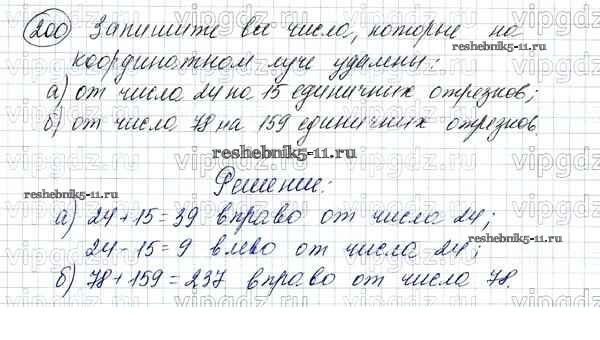 200 Запишите все числа, которые на
reshebnik5-11.ru
координатном луче удалены:
а) от числа 24 на 15 единичных отрезков;
б) от числа 78 на 159 единичных отрезков.
reshebnik5-11.ru
Решение:
reshebnik5-11.ru
а) 24 + 15 = 39 вправо от числа 24;
24 - 15 = 9 влево от числа 24;
reshebnik5-11.ru
б) 78 + 159 = 237 вправо от числа 78.